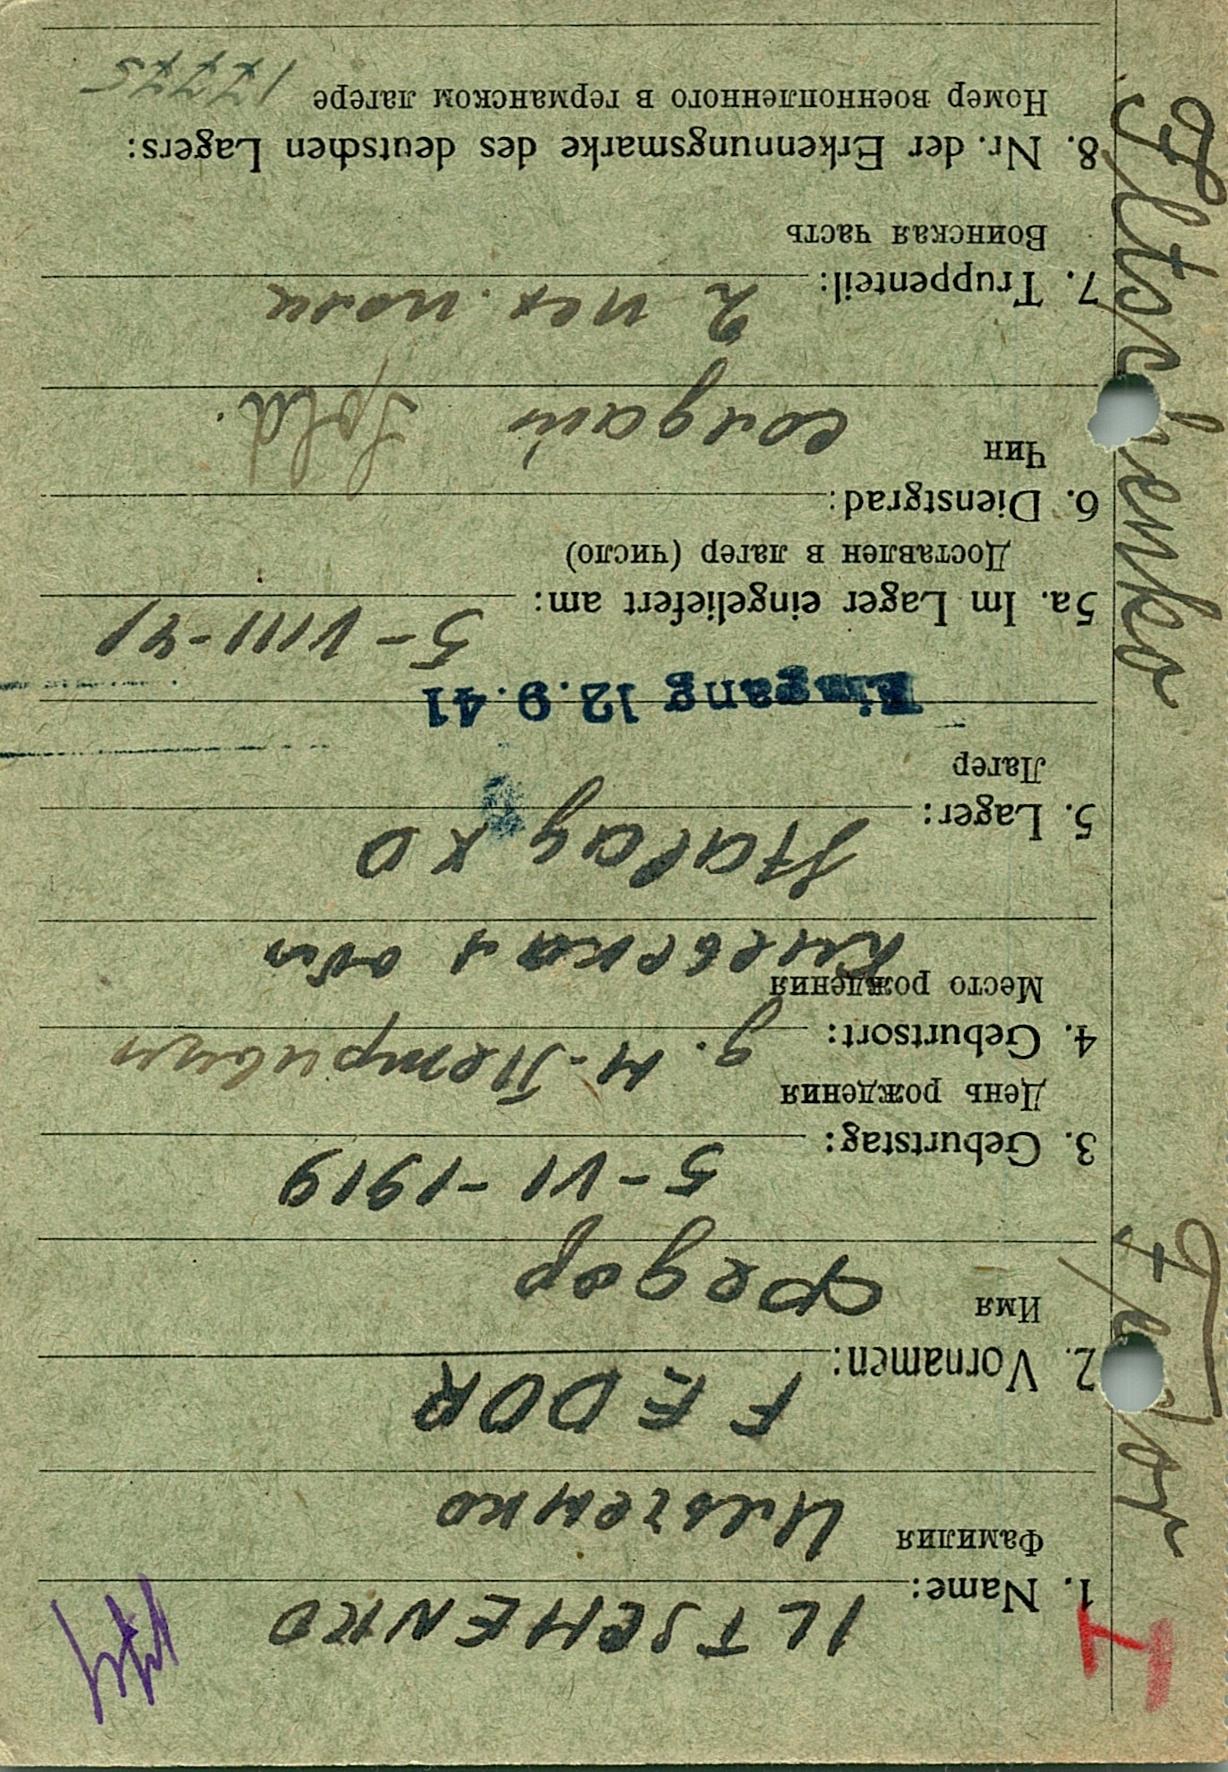 1. Name: ILTSCHENKO
Фамилия Ильченко
2. Vornamen: FEDOR
Имя Федор
3. Geburtstag: 5-VI-1919
День рождения
4. Geburtsort: д. Н-Петривцы
Место рождения Киевская обл
5. Lager: Stalag XD
Лагер
Eingang 12.9.41
5a. Im Lager eingeliefert am: 5-VIII-41
Доставлен в лагер (число)
6. Dienstgrad:
Чин солдат Sold.
7. Truppenteil: 2 пех. полк
Воинская часть
8. Nr. der Erkennungsmarke des deutschen Lagers:
Номер военнопленного в германском лагере 17775
Iltschenko
Fedor